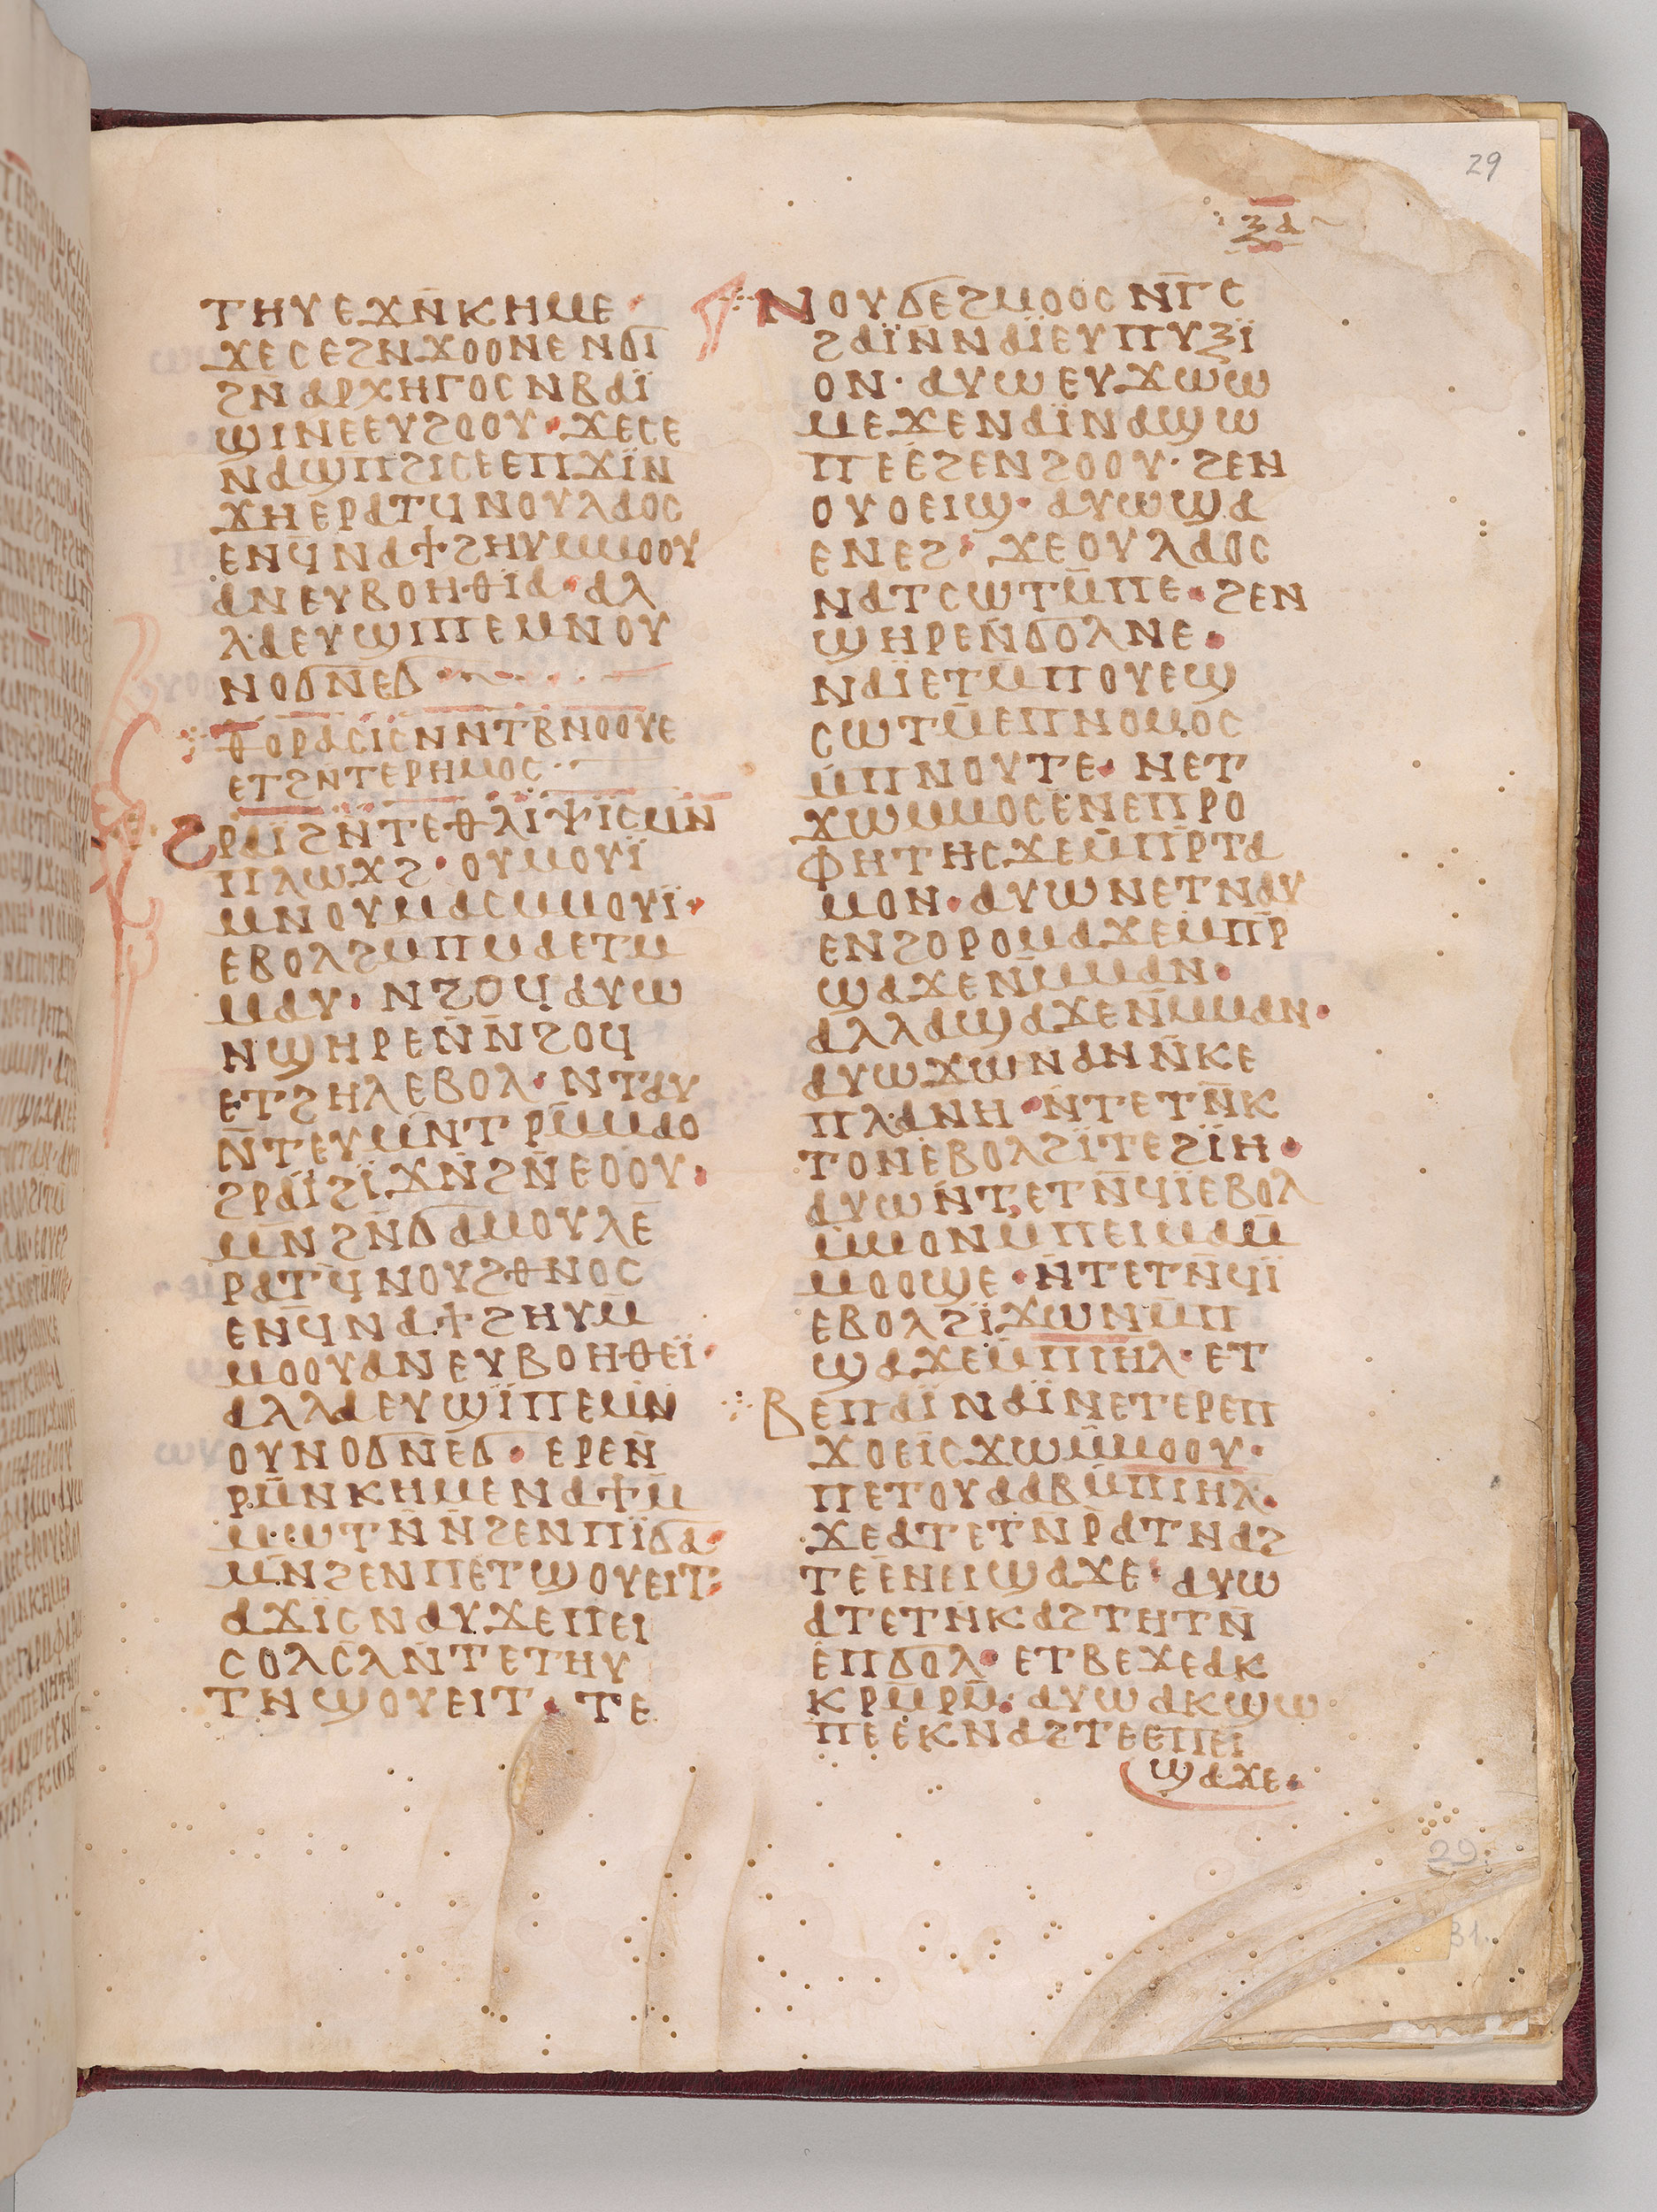 29
ⲝⲁ
ⲧⲏⲩⲉϫⲛ̄ⲕⲏⲙⲉ·
ϫⲉⲥⲉϩⲛϫⲟⲟⲛⲉⲛϭⲓ
ϩⲛ̄ⲁⲣⲭⲏⲅⲟⲥⲛⲃⲁⲓ̈
ϣⲓⲛⲉⲉⲩϩⲟⲟⲩ·ϫⲉⲥⲉ
ⲛⲁϣⲡϩⲓⲥⲉⲉⲡϫⲓ̈ⲛ
ϫⲏⲉⲣⲁⲧϥⲛⲟⲩⲗⲁⲟⲥ
ⲉⲛϥ̄ⲛⲁϯϩⲏⲩⲙⲙⲟⲟⲩ
ⲁⲛⲉⲩⲃⲟⲏⲑⲓⲁ·ⲁⲗ
ⲗⲁⲉⲩϣⲓⲡⲉⲙⲛⲟⲩ
ⲛⲟϭⲛ̄ⲉϭ·
ⲑⲟⲣⲁⲥⲓⲥⲛⲛⲧⲃⲛⲟⲟⲩⲉ
ⲉⲧϩⲛ̄ⲧⲉⲣⲏⲙⲟⲥ·
ϩⲣⲁⲓϩⲛ̄ⲧⲉⲑⲗⲓ̈ⲯⲓ̈ⲥⲙⲛ̄
ⲡⲗⲱϫϩ·ⲟⲩⲙⲟⲩⲓ̈
ⲙⲛⲟⲩⲙⲁⲥⲙⲙⲟⲩⲓ̈·
ⲉⲃⲟⲗϩⲙⲡⲙⲁⲉⲧⲙ
ⲙⲁⲩ·ⲛϩⲟϥⲁⲩⲱ
ⲛϣⲏⲣⲉⲛ̄ⲛ̄ϩⲟϥ
ⲉⲧϩⲏⲗⲉⲃⲟⲗ·ⲛⲧⲁⲩ
ⲛ̄ⲧⲉⲩⲙⲛ̄ⲧⲣⲙ̄ⲙⲁⲟ
ϩⲣⲁⲓ̈ϩⲓ̈ϫⲛ̄ϩⲛ̄ⲉⲟⲟⲩ·
ⲙⲛ̄ϩⲛ̄ϭⲁⲙⲟⲩⲗⲉ̄
ⲣⲁⲧϥⲛⲟⲩϩⲑⲛⲟⲥ
ⲉⲛϥ̄ⲛⲁϯϩⲏⲩⲙ̄
ⲙⲟⲟⲩⲁⲛⲉⲩⲃⲟⲏⲑⲉⲓ̈·
ⲁⲗⲗⲁⲉⲩϣⲓ̈ⲡⲉⲙⲛ̄
ⲟⲩⲛⲟϭⲛ̄ⲉϭ·ⲉⲣⲉⲛ̄
ⲣⲙ̄ⲛⲕⲏⲙⲉⲛⲁϯⲙ̄
ⲙⲱⲧⲛⲛ̄ϩⲉⲛⲡⲓ̈ϭⲁ·
ⲙⲛ̄ϩⲉⲛⲡⲉⲧϣⲟⲩⲉⲓⲧ·
ⲁϫⲓ̈ⲥⲛⲁⲩϫⲉⲡⲉⲓ
ⲥⲟⲗⲥⲗ̄ⲛ̄ⲧⲉⲧⲏⲩ
ⲧⲛϣⲟⲩⲉⲓⲧ·ⲧⲉ
ⲛⲟⲩϭⲉϩⲙⲟⲟⲥⲛⲅ̄ⲥ
ϩⲁⲓ̈ⲛⲛⲁⲓ̈ⲉⲩⲡⲩⲝⲓ̈
ⲟⲛ·ⲁⲩⲱⲉⲩϫⲱⲱ
ⲙⲉϫⲉⲛⲁⲓ̈ⲛⲁϣⲱ
ⲡⲉⲉ̀ϩⲉⲛϩⲟⲟⲩ·ϩⲉⲛ
ⲟⲩⲟⲉⲓϣ·ⲁⲩⲱϣⲁ
ⲉⲛⲉϩ·ϫⲉⲟⲩⲗⲁⲟⲥ
ⲛⲁⲧⲥⲱⲧⲙ̄ⲡⲉ·ϩⲉⲛ
ϣⲏⲣⲉⲛ̄ϭⲟⲗⲛⲉ·
ⲛⲁⲓ̈ⲉⲧⲙ̄ⲡⲟⲩⲉϣ
ⲥⲱⲧⲙ̄ⲉⲡⲛⲟⲙⲟⲥ
ⲙ̄ⲡⲛⲟⲩⲧⲉ·ⲛⲉⲧ
ϫⲱⲙⲙⲟⲥⲉⲛⲉⲡⲣⲟ
ⲫⲏⲧⲏⲥϫⲉⲙ̄ⲡⲣ̄ⲧⲁ
ⲙⲟⲛ·ⲁⲩⲱⲛⲉⲧⲛⲁⲩ
ⲉⲛϩⲟⲣⲟⲙⲁϫⲉⲙⲡⲣ̄
ϣⲁϫⲉⲛⲙ̄ⲙⲁⲛ·
ⲁⲗⲗⲁϣⲁϫⲉⲛ̄ⲙⲙⲁⲛ·
ⲁⲩⲱϫⲱⲛⲁⲛⲛ̄ⲕⲉ
ⲡⲗⲁⲛⲏ·ⲛ̄ⲧⲉⲧⲛ̄ⲕ
ⲧⲟⲛⲉⲃⲟⲗϩⲓ̈ⲧⲉϩⲓ̈ⲏ·
ⲁⲩⲱⲛ̄ⲧⲉⲧⲛ̄ϥⲓ̈ⲉⲃⲟⲗ
ⲙ̄ⲙⲟⲛⲙ̄ⲡⲉⲓⲙⲁⲙ̄
ⲙⲟⲟϣⲉ·ⲛ̄ⲧⲉⲧⲛ̄ϥⲓ̈
ⲉⲃⲟⲗϩⲓ̈ϫⲱⲛⲙ̄ⲡ
ϣⲁϫⲉⲙ̄ⲡⲓⲏⲗ·ⲉⲧ
ⲃⲉⲡⲁⲓ̈ⲛⲁⲓ̈ⲛⲉⲧⲉⲣⲉⲡ
ϫⲟⲉⲓⲥϫⲱⲙ̄ⲙⲟⲟⲩ·
ⲡⲉⲧⲟⲩⲁⲁⲃⲙ̄ⲡⲓⲏⲗ·
ϫⲉⲁⲧⲉⲧⲛⲣ̄ⲁⲧⲛⲁϩ
ⲧⲉⲉ̄ⲛⲉⲓϣⲁϫⲉ·ⲁⲩⲱ
ⲁⲧⲉⲧⲛ̄ⲕⲁϩⲧⲏⲧⲛ̄
ⲉ̀ⲡϭⲟⲗ·ⲉⲧⲃⲉϫⲉⲁⲕ
ⲕⲣⲙ̄ⲣⲙ̄·ⲁⲩⲱⲁⲕϣⲱ
ⲡⲉⲉ̀ⲕⲛⲁϩⲧⲉⲉⲡⲉⲓ
ϣⲁϫⲉ·
29
31